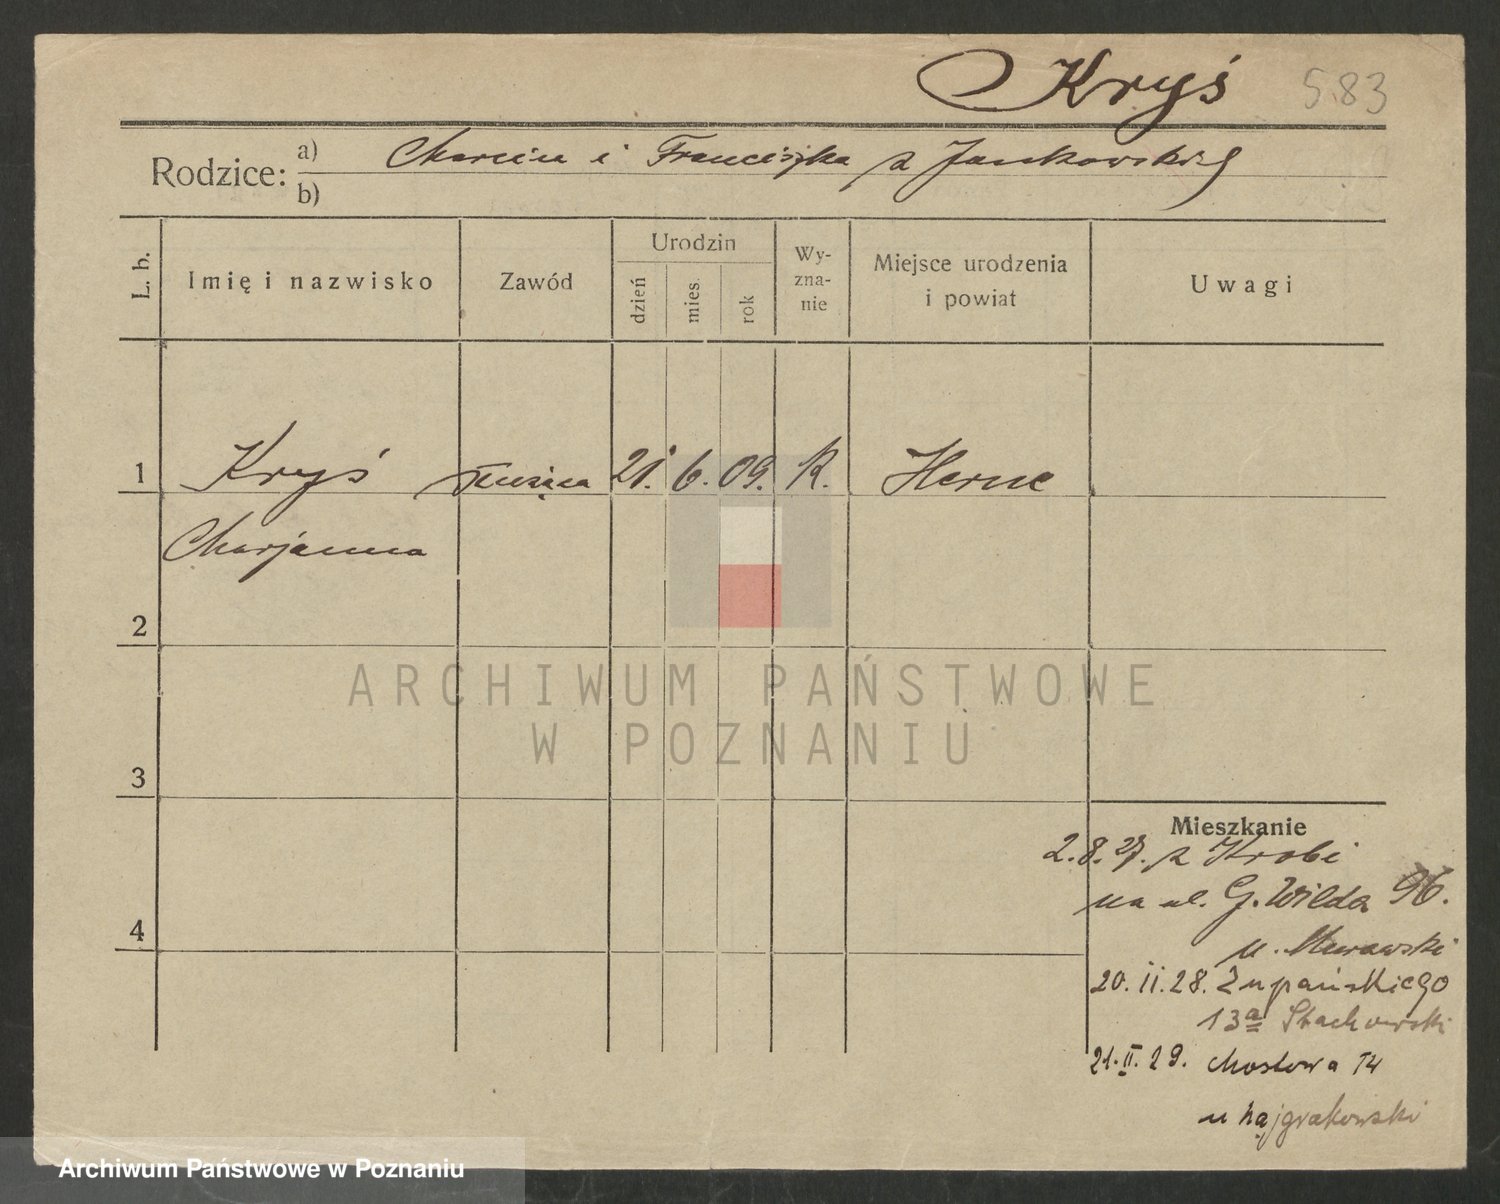 Kryś 583
Rodzice: a) Marcin i Franciszka z Jankowskich
b)
L. b. Imię i nazwisko Zawód Urodzin dzień mies. rok Wyznanie Miejsce urodzenia i powiat Uwagi
1 Kryś służąca 21. 6. 09. K. Herne
Marjanna
2
3
4
Mieszkanie
2.8.27. z Krobi
na ul. G. Wilda 96.
u. Murawski
20.II.28. Żupańskiego
13a Stachowski
21.II.29. Mostowa 14
u
ARCHIWUM PAŃSTWOWE
W POZNANIU
Archiwum Państwowe w Poznaniu